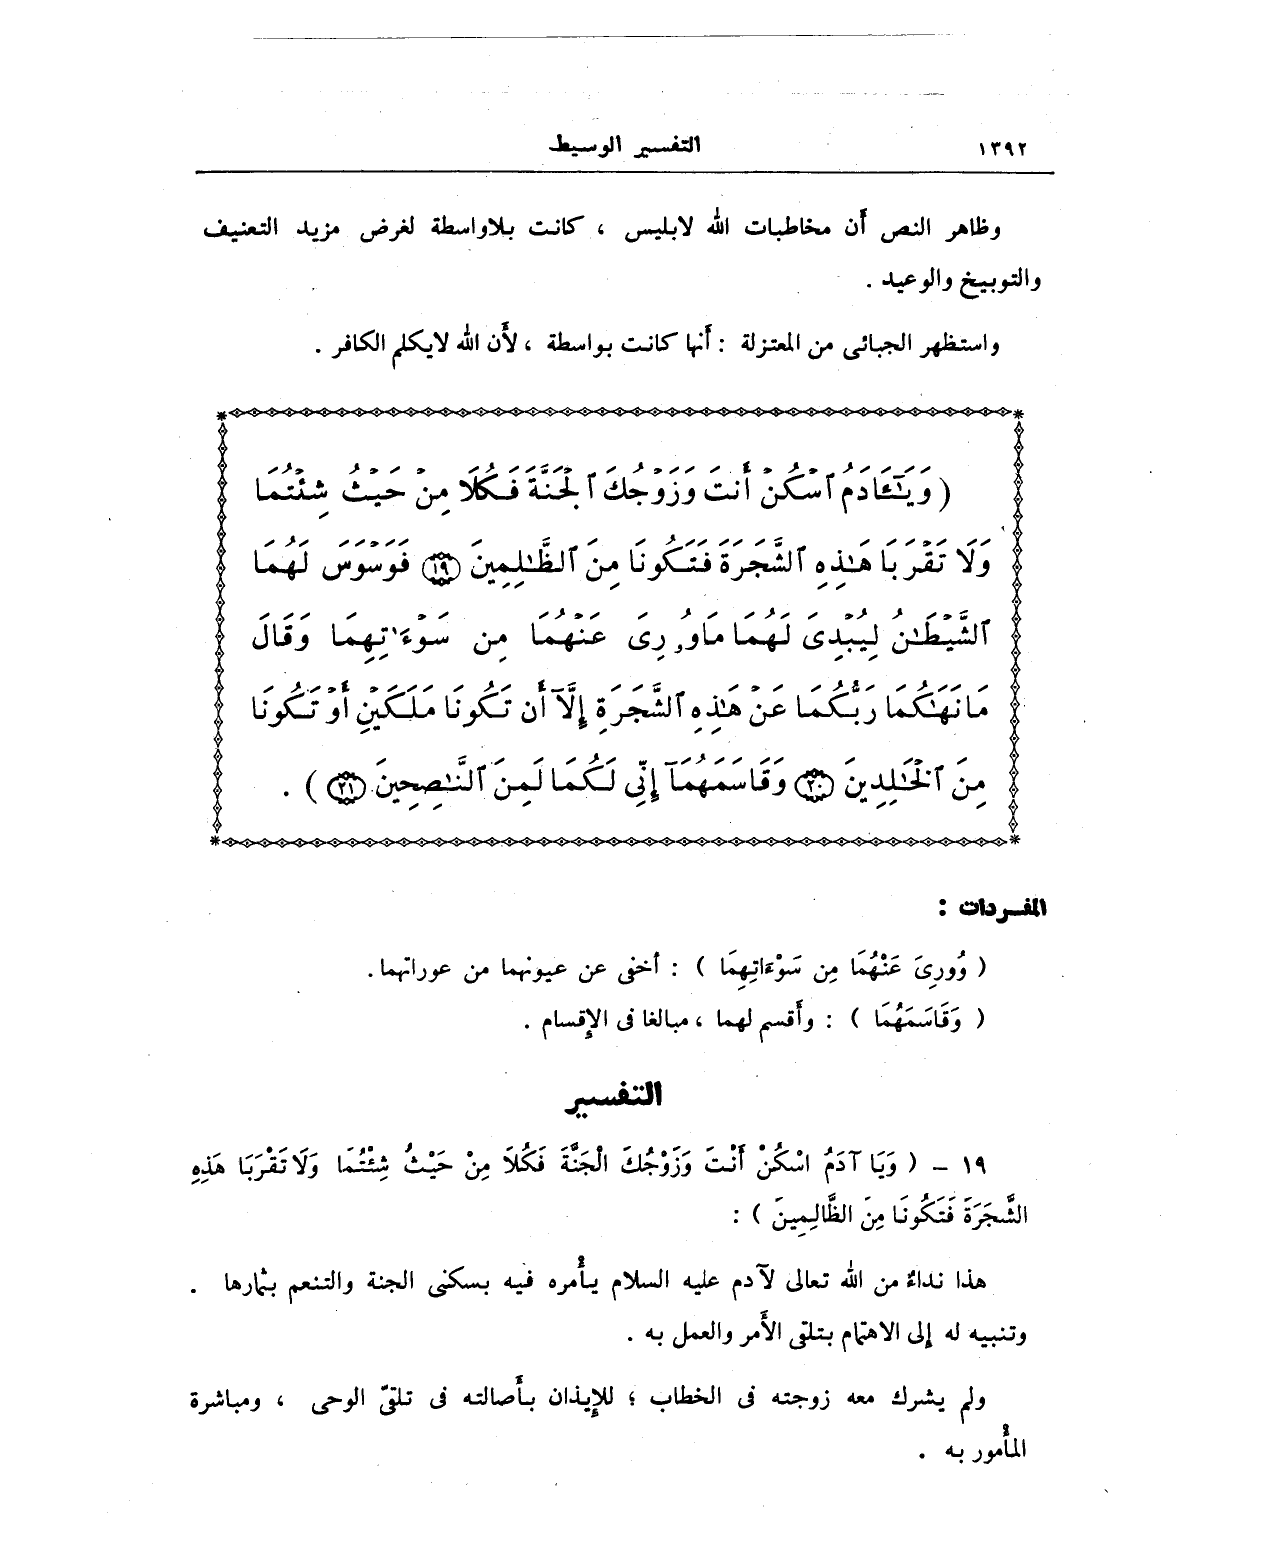 ١٣٩٢ التفسير الوسيط
وظاهر النص أن مخاطبات الله لابليس ، كانت بلاواسطة لغرض مزيد التعنيف
والتوبيخ والوعيد .
واستظهر الجبائى من المعتزلة : أنها كانت بواسطة ، لأن الله لايكلم الكافر .
( وَيَٰٓـَٔادَمُ ٱسْكُنْ أَنتَ وَزَوْجُكَ ٱلْجَنَّةَ فَكُلَا مِنْ حَيْثُ شِئْتُمَا
وَلَا تَقْرَبَا هَٰذِهِ ٱلشَّجَرَةَ فَتَكُونَا مِنَ ٱلظَّٰلِمِينَ ١٩ فَوَسْوَسَ لَهُمَا
ٱلشَّيْطَٰنُ لِيُبْدِىَ لَهُمَا مَاوُۥرِىَ عَنْهُمَا مِن سَوْءَٰتِهِمَا وَقَالَ
مَا نَهَىٰكُمَا رَبُّكُمَا عَنْ هَٰذِهِ ٱلشَّجَرَةِ إِلَّآ أَن تَكُونَا مَلَكَيْنِ أَوْ تَكُونَا
مِنَ ٱلْخَٰلِدِينَ ٢٠ وَقَاسَمَهُمَآ إِنِّى لَكُمَا لَمِنَ ٱلنَّٰصِحِينَ ٢١ ) .
المفردات :
( وُورِىَ عَنْهُمَا مِن سَوْءَاتِهِمَا ) : أخفى عن عيونهما من عوراتهما.
( وَقَاسَمَهُمَا ) : وأقسم لهما ، مبالغا فى الإقسام .
التفسير
١٩ – ( وَيَا آدَمُ اسْكُنْ أَنْتَ وَزَوْجُكَ الْجَنَّةَ فَكُلاَ مِنْ حَيْثُ شِئْتُمَا وَلَا تَقْرَبَا هَذِهِ
الشَّجَرَةَ فَتَكُونَا مِنَ الظَّالِمِينَ ) :
هذا نداءٌ من الله تعالى لآدم عليه السلام يأْمره فيه بسكنى الجنة والتنعم بثمارها .
وتنبيه له إلى الاهتمام بتلقى الأمر والعمل به .
ولم يشرك معه زوجته فى الخطاب ؛ للإيذان بأصالته فى تلقىّ الوحى ، ومباشرة
المأْمور به .